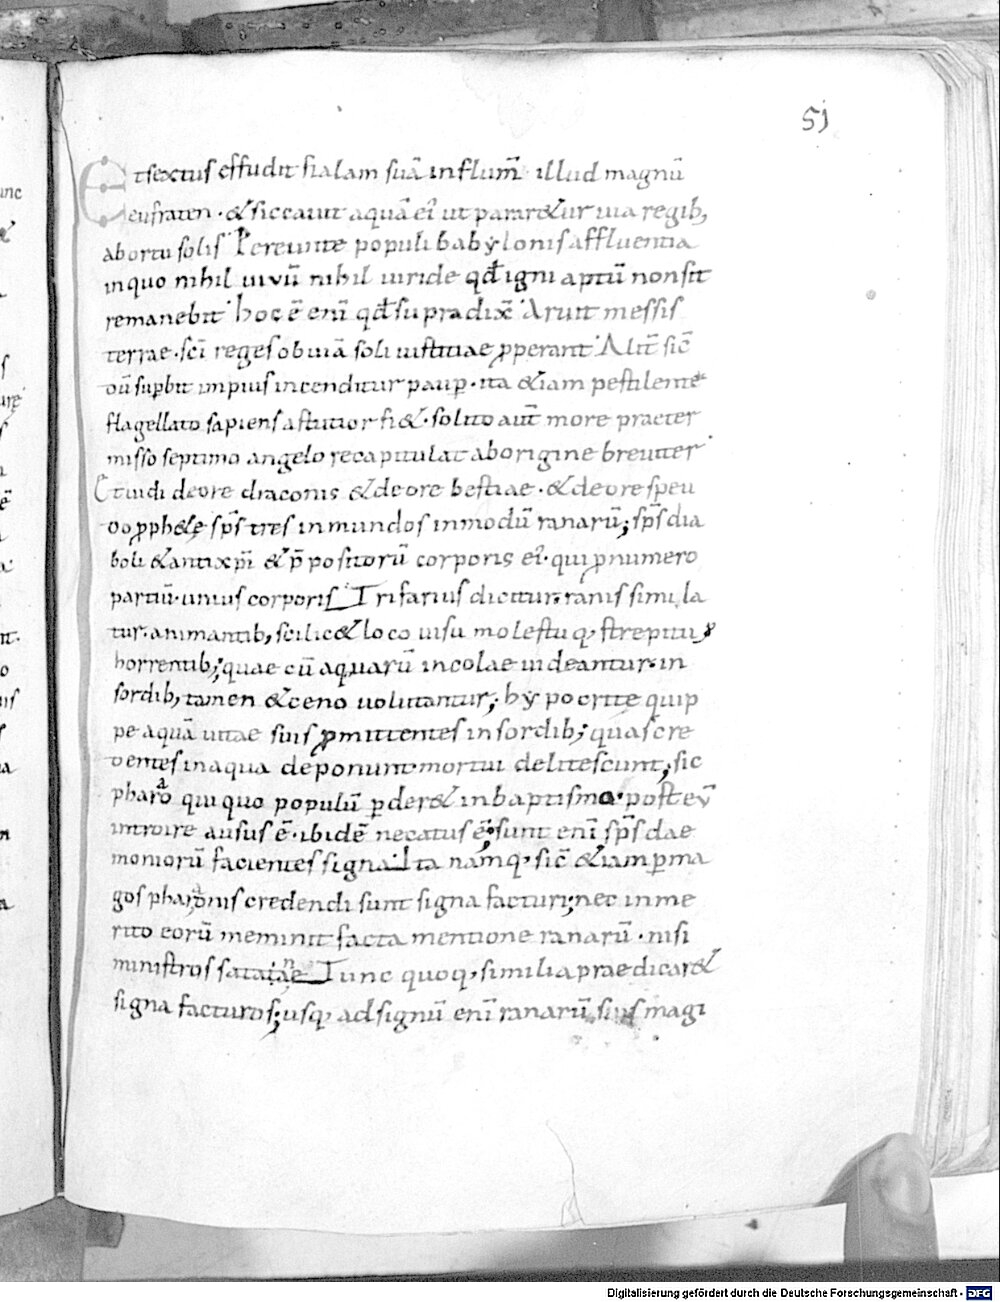 51
Et sextus effudit fialam suā in flum̄ illud magnū
eufraten · & siccauit aquā ei' ut parar&ur uia regib;
abortu solis Pereunte populi babẏlonis affluentia
inquo nihil uiuū nihil uiride qđ igni aptū non sit
remanebit hoc ē enī qđ supradix̄ Aruit messis
terrae · sc̄i reges obuiā soli iustitiae ꝓperant Alit̄ sic̄
dū suꝑbit impius incenditur pauꝑ · ita &iam pestilente
flagellato sapiens astutior fi& · solito aūt more praeter
misso septimo angelo recapitulat aborigine breuiter
Et uidi de ore draconis & de ore bestiae · & de ore seu
do ꝓph&e sp̄s tres inmundos inmodū ranarū; sp̄s dia
boli & antixp̄i & p̄positorū corporis ei' · qui ꝓ numero
partiū · unius corporis Trifarius dicitur · ranis simila
tur · animantib; scilic& loco uisu molestuq; strepitu
horrentib; quae cū aquarū incolae uideantur · in
sordib; tamen & ceno uolutantur; hẏpocrite quip
pe aquā uitae suis ꝓmittentes insordib; quas cre
dentes in aqua deponunt mortui delitescunt; sic
pharao qui quo populū ꝑder& in baptismo · post eū
introire ausus ē · ibidē necatus ē; sunt enī sp̄s dae
moniorū facientes signa Ita namq; sic̄ &iam ꝑ ma
gos pharaonis credendi sunt signa facturi; nec inme
rito eorū meminit facta mentione ranarū · nisi
ministros satanae Tunc quoq; similia praedicar&
signa facturos; usq; ad signū enī ranarū suis magi
Digitalisierung gefördert durch die Deutsche Forschungsgemeinschaft - DFG